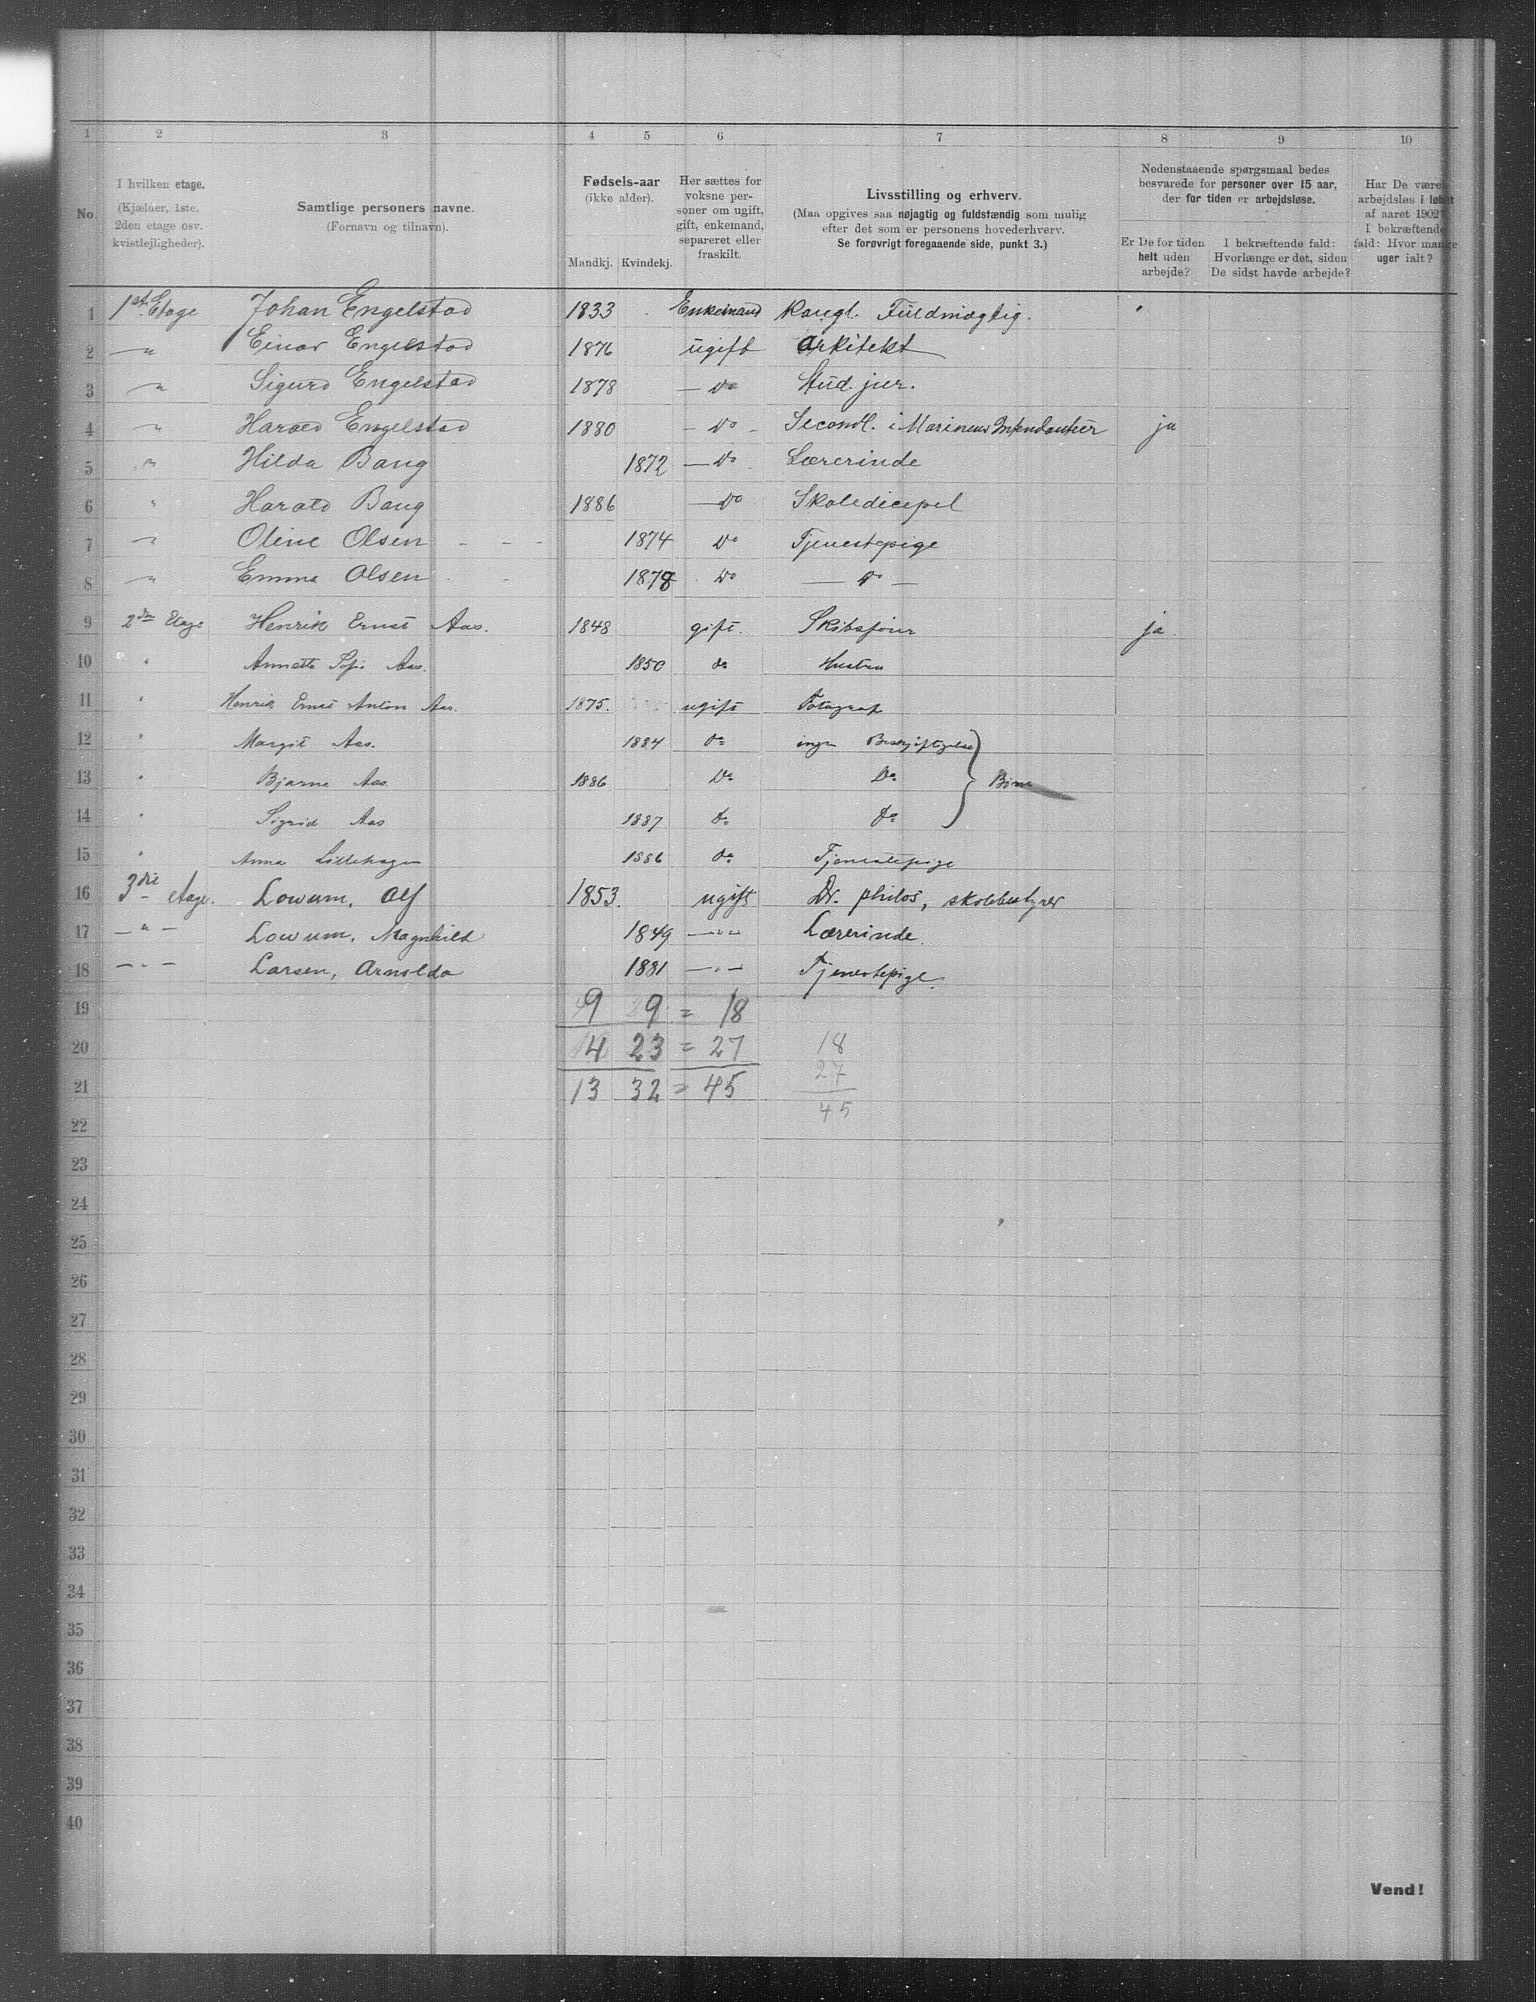 1 2 3 4 5 6 7 8 9 10
No.
I hvilken etage.
(Kjælder, 1ste.
2den etage osv.
kvistlejligheder).
Samtlige personers navne.
(Fornavn og tilnavn).
Fødsels-aar
(ikke alder).
Mandkj. Kvindekj.
Her sættes for
voksne per-
soner om ugift,
gift, enkemand,
separeret eller
fraskilt.
Livsstilling og erhverv.
(Maa opgives saa nøjagtig og fuldstændig som mulig
efter det som er personens hovederhverv.
Se forøvrigt foregaaende side, punkt 3.)
Nedenstaaende spørgsmaal bedes
besvarede for personer over 15 aar,
der for tiden er arbejdsløse.
Er De for tiden
helt uden
arbejde?
I bekræftende fald:
Hvorlænge er det, siden
De sidst havde arbejde?
Har De været
arbejdsløs i løbet
af aaret 1902?
I bekræftende
fald: Hvor mange
uger ialt?
1 1st Etage Johan Engelstad 1833 Enkemand Kongl. Fuldmægtig.
2 " Einar Engelstad 1876 ugift Arkitekt
3 " Sigurd Engelstad 1878 — Do Stud. jur.
4 " Harald Engelstad 1880 - Do - Secondl. i Marinens Intendantur ja
5 " Hilda Bang 1872 — Do Lærerinde
6 " Harald Bang 1886 — Do Skoledicepel
7 " Oline Olsen - - - 1874 Do Tjenestepige
8 " Emma Olsen - - 1878 Do — Do —
9 2den Etage Henrik Ernst Aas. 1848 gift. Skibsfører ja.
10 " Annette Sofie Aas. 1850 do Hustru
11 " Henrik Ernst Anton Aas. 1875. ugift Fotograf
12 " Margit Aas. 1884 do ingen Beskjæftigelse
13 " Bjarne Aas. 1886 Do Do } Børn
14 " Sigrid Aas 1887 do do
15 " Anna Lillehagen 1886 do Tjenestepige
16 3die etage. Lowum, Alf 1853. ugift Dr. philos, skolebestyrer
17 — " — Lowum, Magnhild 1849 — " — Lærerinde.
18 — " — Larsen, Arnolda 1881 — " — Tjenestepige.
19 9 9 = 18
20 4 23 = 27 18
21 13 32 = 45 27
22 45
23
24
25
26
27
28
29
30
31
32
33
34
35
36
37
38
39
40
Vend!